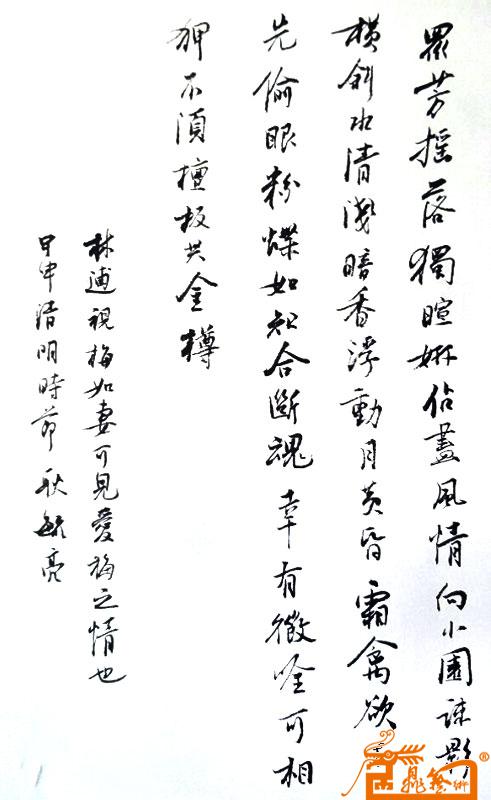 眾芳搖落獨暄妍佔盡風情向小園疎影
橫斜水清淺暗香浮動月黃昏霜禽欲下
先偷眼粉蝶如知合斷魂幸有微吟可相
狎不須檀板共金樽
林逋視梅如妻可見愛梅之情也
甲申清明時節 耿毓亮